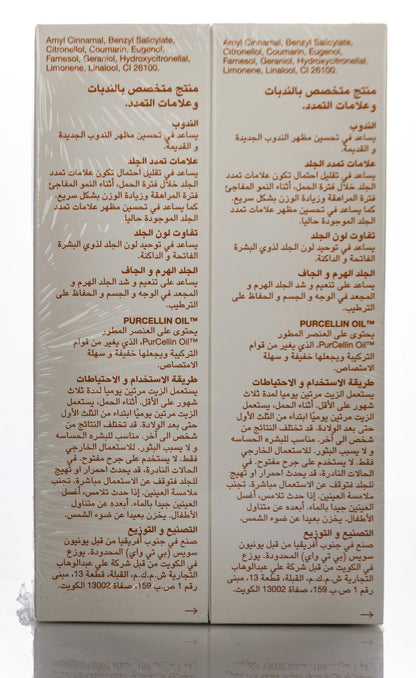 Amyl Cinnamal, Benzyl Salicylate,
Citronellol, Coumarin, Eugenol,
Farnesol, Geraniol, Hydroxycitronellal,
Limonene, Linalool, CI 26100.
منتج متخصص بالندبات
وعلامات التمدد.
الندوب
يساعد في تحسين مظهر الندوب الجديدة
و القديمة.
علامات تمدد الجلد
يساعد في تقليل احتمال تكون علامات تمدد
الجلد خلال فترة الحمل، أثناء النمو المفاجئ
فترة المراهقة وزيادة الوزن بشكل سريع.
كما يساعد في تحسين مظهر علامات تمدد
الجلد الموجودة حاليا.
تفاوت لون الجلد
يساعد في توحيد لون الجلد لذوي البشرة
الفاتحة و الداكنة.
الجلد الهرم و الجاف
يساعد على تنعيم و شد الجلد الهرم و
المجعد في الوجه و الجسم و الحفاظ على
الترطيب.
PURCELLIN OIL™
يحتوى على العنصر المطور
PurCellin Oil™، الذي يغير من قوام
التركيبة ويجعلها خفيفة و سهلة
الامتصاص.
طريقة الاستخدام و الاحتياطات
يستعمل الزيت مرتين يوميا لمدة ثلاث
شهور على الأقل. أثناء الحمل، يستعمل
الزيت مرتين يوميا ابتداء من الثلث الأول
للولادة. و قد تختلف النتائج من
شخص الى آخر. مناسب للبشره الحساسه
و لا يسبب البثور. للاستعمال الخارجي
فقط. لا يستخدم على جرح مفتوح. في
الحالات النادرة، قد يحدث احمرار او تهيج
للجلد فتوقف عن الاستعمال مباشرة. تجنب
ملامسة العينين. إذا حدث تلامس، أغسل
العينين جيدا بالماء. أبعده عن متناول
الأطفال. يخزن بعيدا عن ضوء الشمس.
التصنيع و التوزيع
صنع في جنوب أفريقيا من قبل يونيون
سويس (بي تي واي) المحدودة. يوزع
في الكويت من قبل شركة علي عبدالوهاب
التجارية ش.م.ك.م، القبلة، قطعة 13، مبنى
رقم 1 ص.ب 159، صفاة 13002 الكويت.
→
Amyl Cinnamal, Benzyl Salicylate,
Citronellol, Coumarin, Eugenol,
Farnesol, Geraniol, Hydroxycitronellal,
Limonene, Linalool, CI 26100.
منتج متخصص بالندبات
وعلامات التمدد.
الندوب
يساعد في تحسين مظهر الندوب الجديدة
و القديمة.
علامات تمدد الجلد
يساعد في تقليل احتمال تكون علامات تمدد
الجلد خلال فترة الحمل، أثناء النمو المفاجئ
فترة المراهقة وزيادة الوزن بشكل سريع.
كما يساعد في تحسين مظهر علامات تمدد
الجلد الموجودة حاليا.
تفاوت لون الجلد
يساعد في توحيد لون الجلد لذوي البشرة
الفاتحة و الداكنة.
الجلد الهرم و الجاف
يساعد على تنعيم و شد الجلد الهرم و
المجعد في الوجه و الجسم و الحفاظ على
الترطيب.
PURCELLIN OIL™
يحتوى على العنصر المطور
PurCellin Oil™، الذي يغير من قوام
التركيبة ويجعلها خفيفة و سهلة
الامتصاص.
طريقة الاستخدام و الاحتياطات
يستعمل الزيت مرتين يوميا لمدة ثلاث
شهور على الأقل. أثناء الحمل، يستعمل
الزيت مرتين يوميا ابتداء من الثلث الأول
للولادة. و قد تختلف النتائج من
شخص الى آخر. مناسب للبشره الحساسه
و لا يسبب البثور. للاستعمال الخارجي
فقط. لا يستخدم على جرح مفتوح. في
الحالات النادرة، قد يحدث احمرار او تهيج
للجلد فتوقف عن الاستعمال مباشرة. تجنب
ملامسة العينين. إذا حدث تلامس، أغسل
العينين جيدا بالماء. أبعده عن متناول
الأطفال. يخزن بعيدا عن ضوء الشمس.
التصنيع و التوزيع
صنع في جنوب أفريقيا من قبل يونيون
سويس (بي تي واي) المحدودة. يوزع
في الكويت من قبل شركة علي عبدالوهاب
التجارية ش.م.ك.م، القبلة، قطعة 13، مبنى
رقم 1 ص.ب 159، صفاة 13002 الكويت.
→